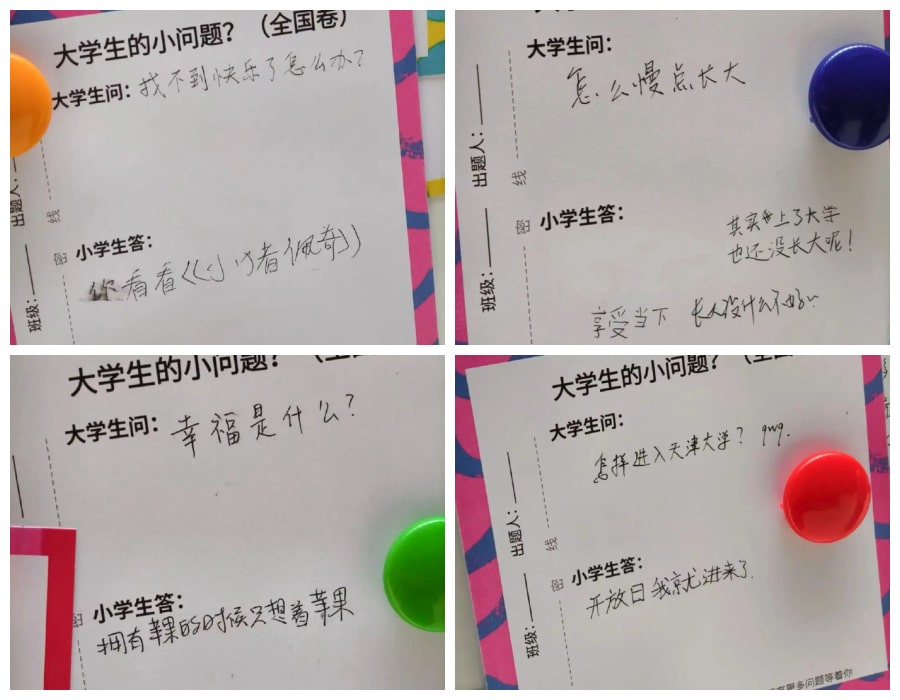 大学生的小问题？（全国卷）
大学生问：找不到快乐了怎么办？
出题人：
线
密
小学生答：
你看看《《小猪佩奇》》
班级：
大学生问：
怎么慢点长大
出题人：
线
密
小学生答：
其实上了大学
也还没长大呢！
享受当下 长大没什么不好~
班级：
大学生的小问题？（全国
大学生问：幸福是什么？
密
小学生答：
拥有苹果的时候只想着苹果
大学生的小问题？（全国
大学生问：
怎样进入天津大学？qwq.
出题人：
线
密
小学生答：
开放日我就进来了.
班级：
有更多问题等着你